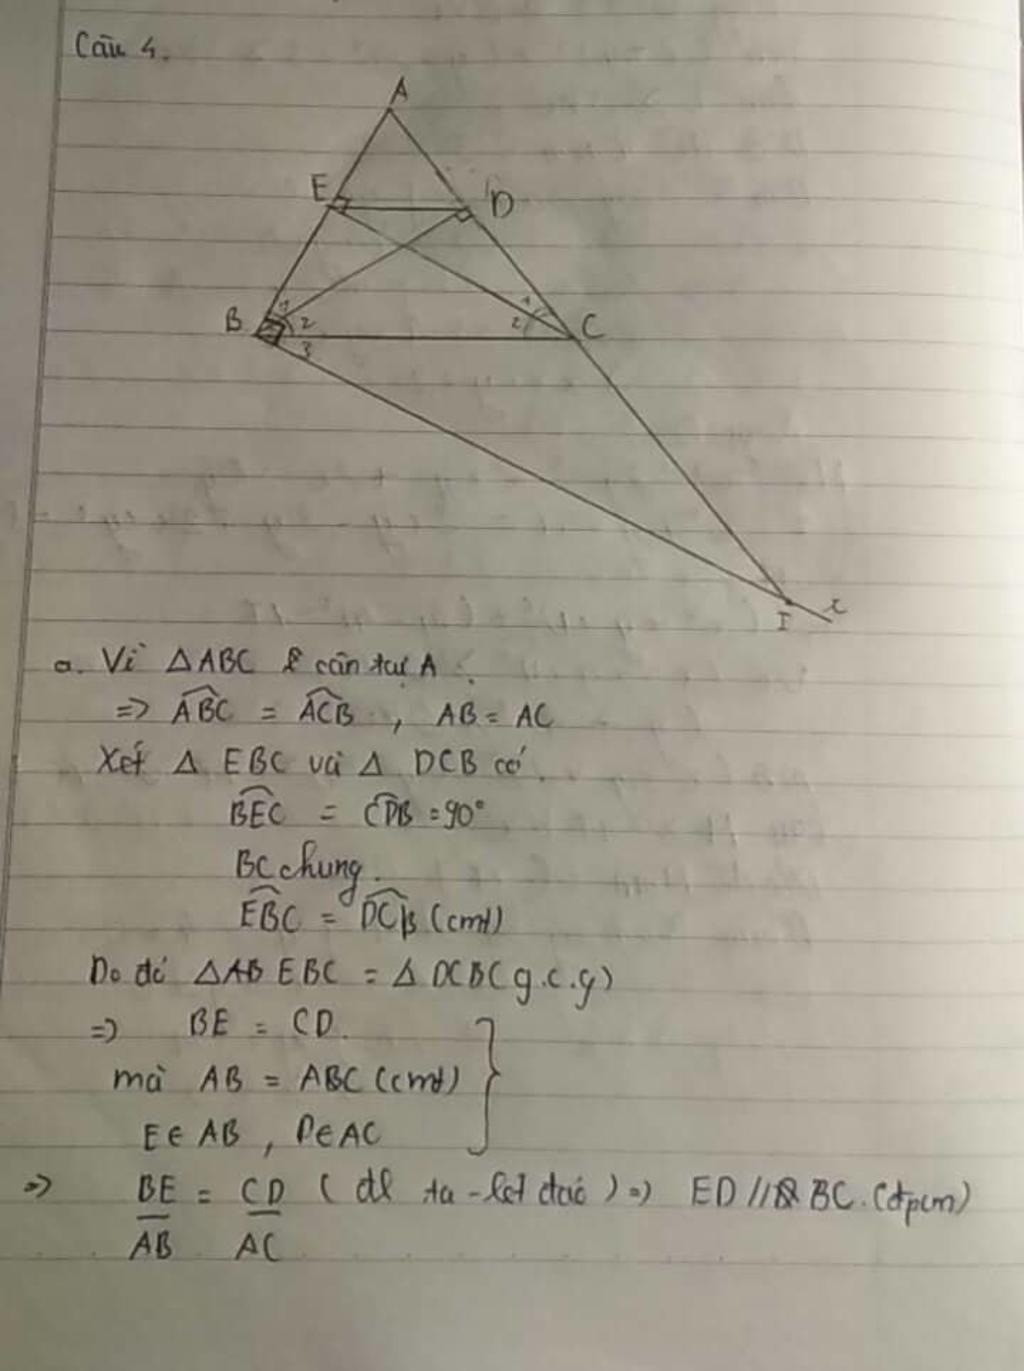 Câu 4.
A
E
D
B
1
2
3
1
2
C
I
x
a. Vì △ABC cân tại A
=> ABC = ACB, AB = AC
Xét △ EBC và △ DCB có
BEC = CDB = 90°
BC chung.
EBC = DCB (cmt)
Do đó △AB EBC = △ DCB (g.c.g)
=> BE = CD.
mà AB = ABC (cmt)
E∈ AB, D∈ AC
=> BE/AB = CD/AC (đl ta-let đảo) => ED // BC. (đpcm)